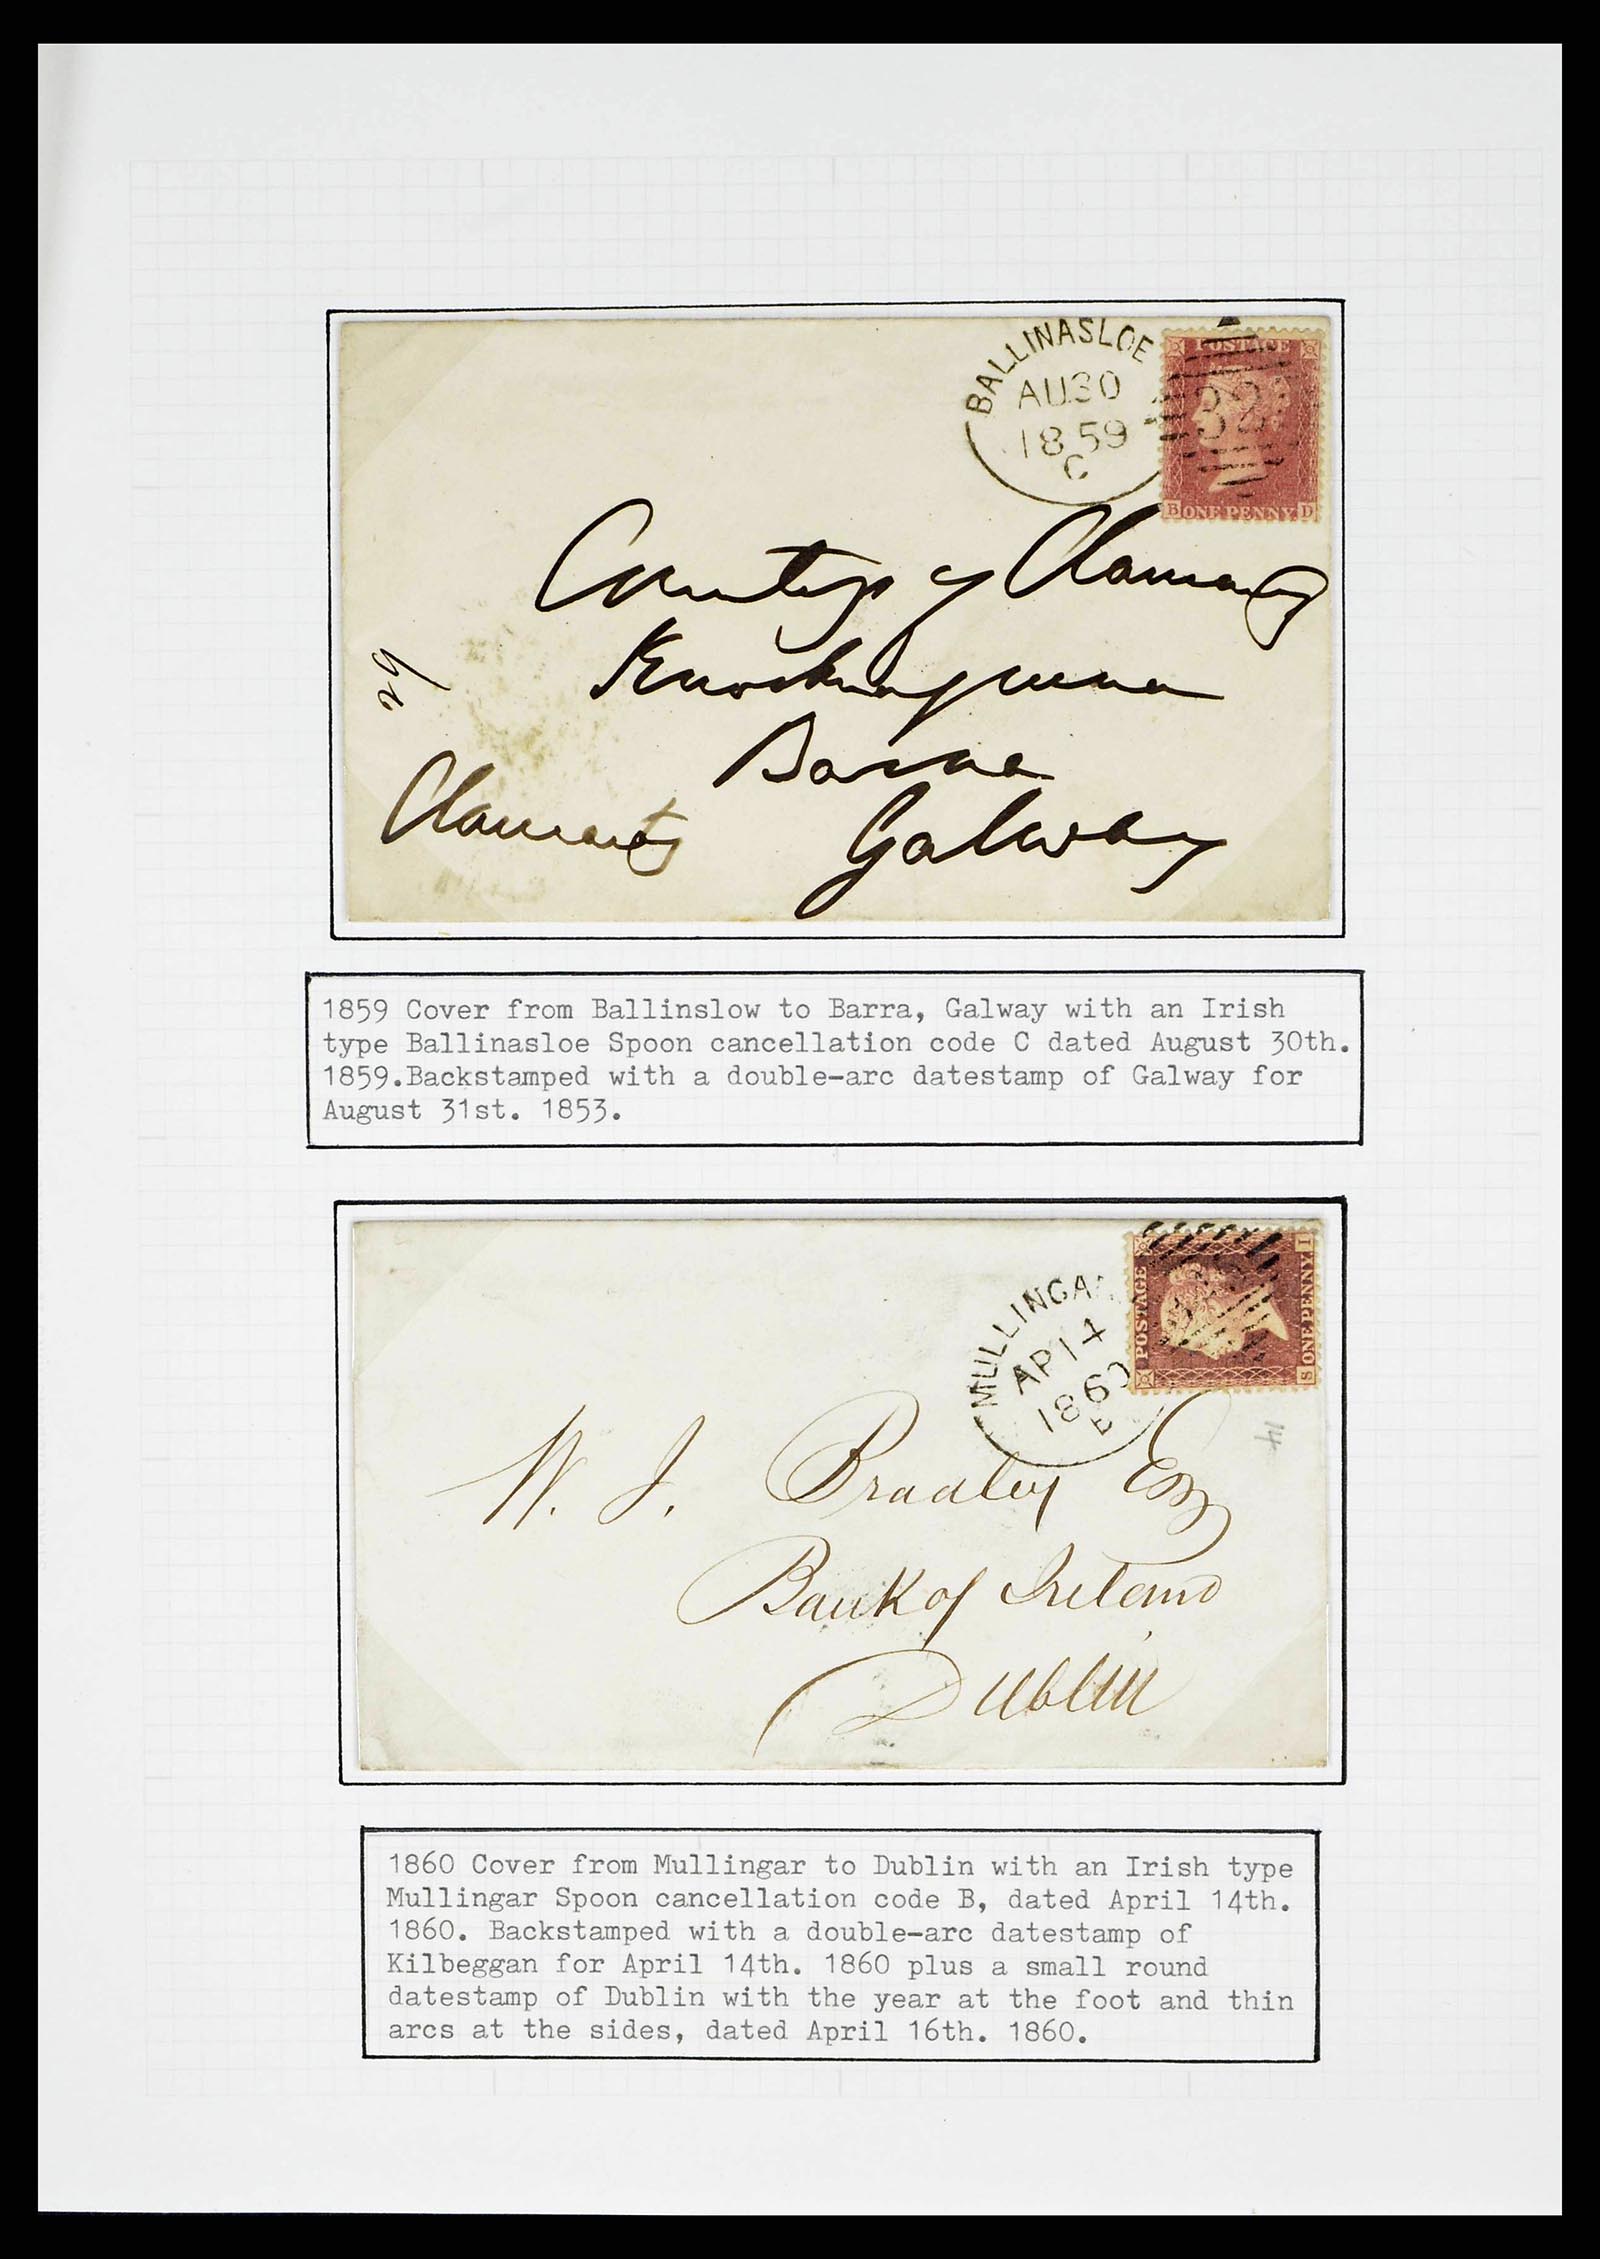 BALLINASLOE
AU 30
18 59
C
POSTAGE
32
B ONE PENNY D
of
Barna
Galway
1859 Cover from Ballinslow to Barra, Galway with an Irish
type Ballinasloe Spoon cancellation code C dated August 30th.
1859.Backstamped with a double-arc datestamp of Galway for
August 31st. 1853.
MULLINGA
AP 14
18 60
B
POSTAGE
S ONE PENNY I
14
W. J. Bradley Esq
Bank of Ireland
Dublin
1860 Cover from Mullingar to Dublin with an Irish type
Mullingar Spoon cancellation code B, dated April 14th.
1860. Backstamped with a double-arc datestamp of
Kilbeggan for April 14th. 1860 plus a small round
datestamp of Dublin with the year at the foot and thin
arcs at the sides, dated April 16th. 1860.